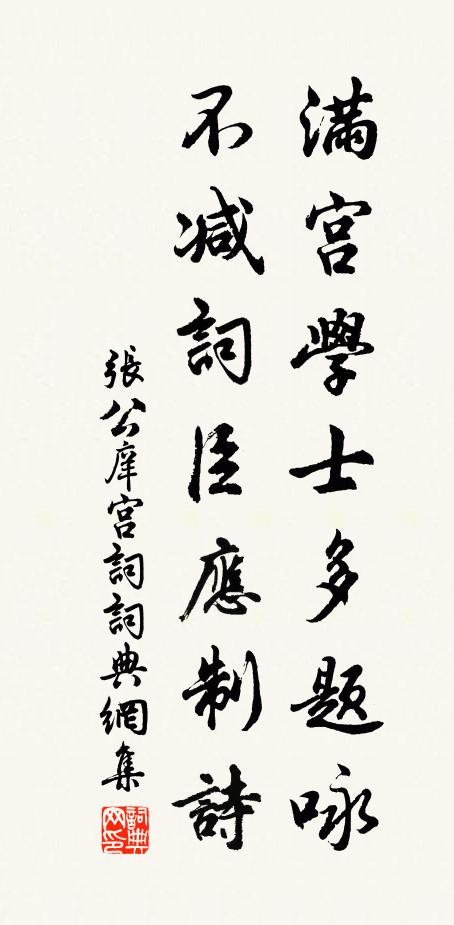 滿宮學士多題咏
不減詞臣應制詩
張公庠宮詞詞典網集
詞典网印